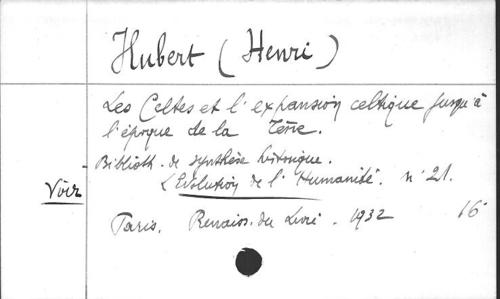 Hubert (Henri)
Les Celtes et l'expansion celtique jusqu'à
l'époque de la Tène.
Biblioth. de synthèse historique.
Voir L'Evolution de l'Humanité. n° 21.
Paris. Renaiss. du Livre. 1932 16°